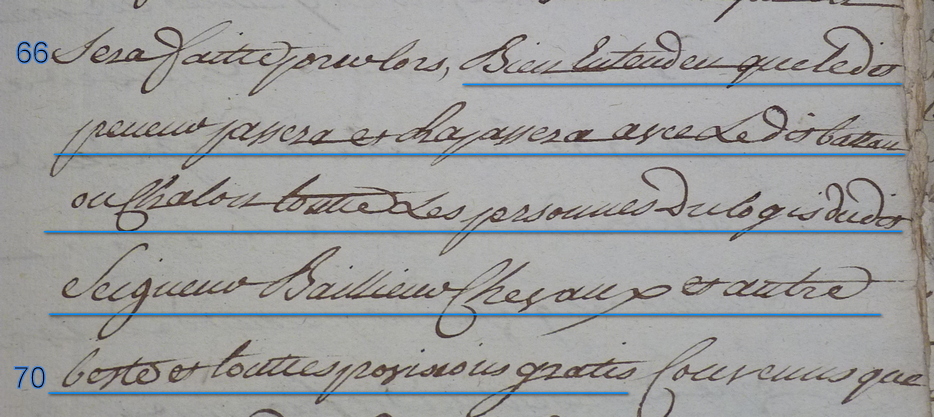 66 Sera faitte pour lors, Bien Entenduu que ledit
preneur passera et rapassera avec Ledit battau
ou Chalon toutte Les personnes Du logis dudit
Seigneur Baillieur Chevaux et autre
70 beste et touttes provisions gratis Convenus que